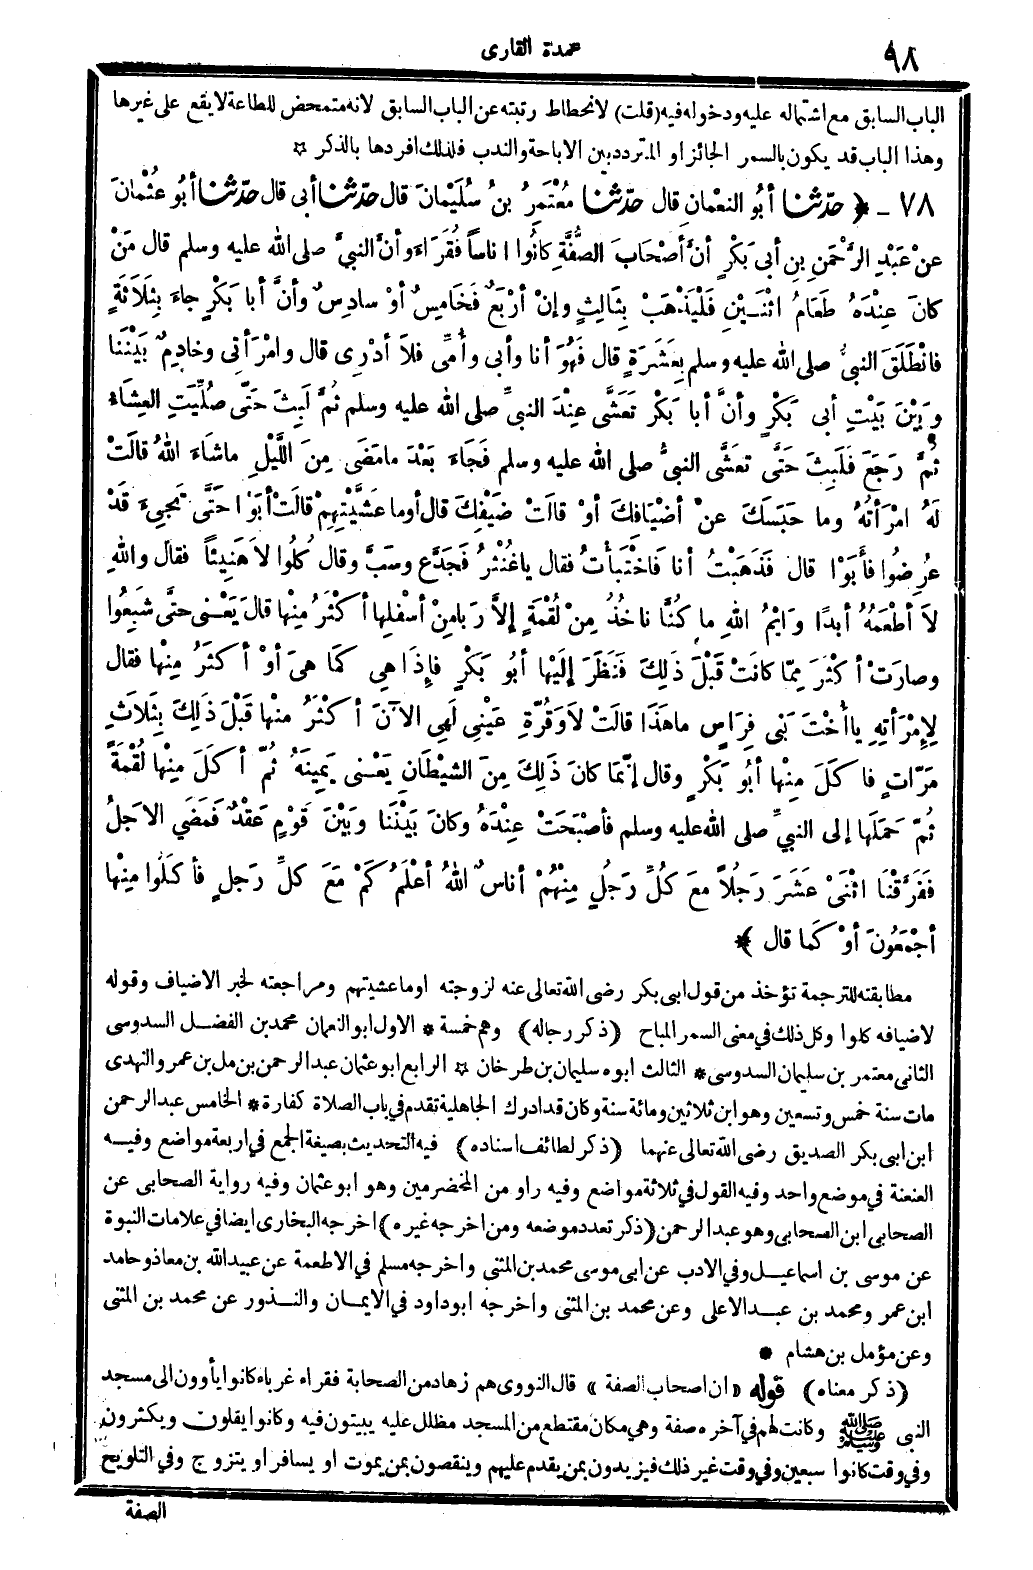 ٩٨
عمدة القارى
الباب السابق مع اشتماله عليه ودخوله فيه (قلت) لانحطاط رتبته عن الباب السابق لانه متمحض للطاعة لا يقع على غيرها
وهذا الباب قد يكون بالسمر الجائز او المتردد بين الاباحة والندب فلذلك افردها بالذكر ☆
٧٨ ـ ﴿ حدّثنا أبُو النعْمانِ قال حدّثنا مُعْتَمِرُ بنُ سُلَيْمانَ قال حدّثنا أبى قال حدّثنا أبُو عثْمانَ
عنْ عَبْدِ الرَّحْمَنِ بنِ أبى بَكْرٍ أنَّ أصْحابَ الصُّفَّةِ كانُوا اناساً فُقَرَاءَ وأنَّ النبىَّ صلى الله عليه وسلم قال مَنْ
كانَ عِنْدَهُ طَعَامُ اثْنَـيْنِ فَلْيَذْهَبْ بِثَالِثٍ وإنْ أرْبَعٌ فَخَامِسٌ أوْ سادِسٌ وأنَّ أبا بَكْرٍ جاءَ بِثَلاَثَةٍ
فانْطَلَقَ النبىُّ صلى الله عليه وسلم بِعَشَرَةٍ قال فَهُوَ أنا وأبى وأُمِّى فلاَ أدْرِى قال وامْرَأتى وخادِمٌ بَيْنَنا
وبَيْنَ بَيْتِ أبى بَكْرٍ وأنَّ أبا بَكْرٍ تَعَشَّى عِنْدَ النبىِّ صلى الله عليه وسلم ثُمَّ لَبِثَ حَتَّى صُلِّيَتِ العِشَاءُ
ثُمَّ رَجَعَ فَلَبِثَ حَتَّى تَعَشَّى النبىُّ صلى الله عليه وسلم فَجَاءَ بَعْدَ ما مَضَى مِنَ اللَّيْلِ ماشَاءَ اللهُ قالَتْ
لَهُ امْرَأتُهُ وما حَبَسَكَ عنْ أضْيَافِكَ أوْ قالَتْ ضَيْفِكَ قال أوما عَشَّيْتِهِمْ قالَتْ أبَوْا حَتَّى تَجِيءَ قَدْ
عُرِضُوا فأبَوْا قال فَذَهَبْتُ أنا فَاخْتَبَأْتُ فقال ياغُنْثَرُ فَجَدَّعَ وسَبَّ وقال كُلُوا لاَ هَنِيئاً فقال واللهِ
لاَ أطْعَمُهُ أبَدًا وَايْمُ اللهِ ما كُنَّا ناخُذُ مِنْ لُقْمَةٍ إلاَّ رَبا مِنْ أسْفلِها أكْثَرُ مِنْها قال يَعْنى حتَّى شَبِعُوا
وصارَتْ أكْثَرَ مِمّا كانَتْ قَبْلَ ذَلِكَ فَنَظَرَ إلَيْها أبُو بَكْرٍ فإذَا هي كَما هيَ أوْ أكثَرُ مِنْها فقال
لِإمْرَأتِهِ ياأُخْتَ بَنى فِرَاسٍ ماهَذَا قالَتْ لاَوَقُرَّةِ عَيْنِى لَهِي الآنَ أكْثَرُ منْها قَبْلَ ذَلِكَ بِثَلاَثِ
مَرَّاتٍ فأكَلَ مِنْها أبُو بَكْرٍ وقال إنَّمَا كانَ ذَلِكَ مِنَ الشيْطَانِ يَعْـنى يَمِينَهُ ثُمَّ أكَلَ مِنْها لُقْمَةً
ثُمَّ حَمَلَها إلى النبيِّ صلى الله عليه وسلم فأصْبَحَتْ عِنْدَهُ وكانَ بَيْنَنَا وبَيْنَ قَوْمٍ عَقْدٌ فَمَضَي الاَجلُ
فَفَرَّقْنَا اثْنَىْ عَشَرَ رَجُلاً مَعَ كُلِّ رَجُلٍ مِنْهُمْ أناسٌ اللهُ أعْلَمُ كَمْ مَعَ كلِّ رَجلٍ فأكَلُوا مِنْها
أجْمَعُونَ أوْ كَما قال ﴾
مطابقته للترجمة تؤخذ من قول ابى بكر رضى الله تعالى عنه لزوجته اوما عشيتهم ومراجعته لخبر الاضياف وقوله
لاضيافه كلوا وكل ذلك في معنى السمر المباح (ذكر رجاله) وهم خمسة * الاول ابو النعمان محمد بن الفضل السدوسى
الثانى معتمر بن سليمان السدوسى * الثالث ابوه سليمان بن طرخان ☆ الرابع ابو عثمان عبد الرحمن بن مل بن عمرو النهدى
مات سنة خمس وتسعين وهو ابن ثلاثين ومائة سنة وكان قد ادرك الجاهلية تقدم في باب الصلاة كفارة * الخامس عبد الرحمن
ابن ابى بكر الصديق رضى الله تعالى عنهما (ذكر لطائف اسناده) فيه التحديث بصيغة الجمع في اربعة مواضع وفيـه
العنعنة في موضع واحد وفيه القول في ثلاثة مواضع وفيه راو من المخضرمين وهو ابو عثمان وفيه رواية الصحابى عن
الصحابى ابن الصحابى وهو عبد الرحمن (ذكر تعدد موضعه ومن اخرجه غيره) اخرجه البخارى ايضا في علامات النبوة
عن موسى بن اسماعيـل وفي الادب عن ابى موسى محمد بن المثنى واخرجه مسلم في الاطعمة عن عبيد الله بن معاذ وحامد
ابن عمر ومحمد بن عبـد الاعلى وعن محمد بن المثنى واخرجه ابو داود في الايمـان والنـذور عن محمد بن المثنى
وعن مؤمل بن هشام *
(ذكر معناه) قوله «ان اصحاب الصفة» قال النووى هم زهاد من الصحابة فقراء غرباء كانوا يأوون الى مسجد
النبى ﷺ وكانت لهم في آخره صفة وهي مكان مقتطع من المسجد مظلل عليه يبيتون فيه وكانوا يقلون ويكثرون
وفي وقت كانوا سبعين وفي وقت غير ذلك فيزيدون بمن يقدم عليهم وينقصون بمن يموت او يسافر او يتزوج وفي التلويح
الصفة